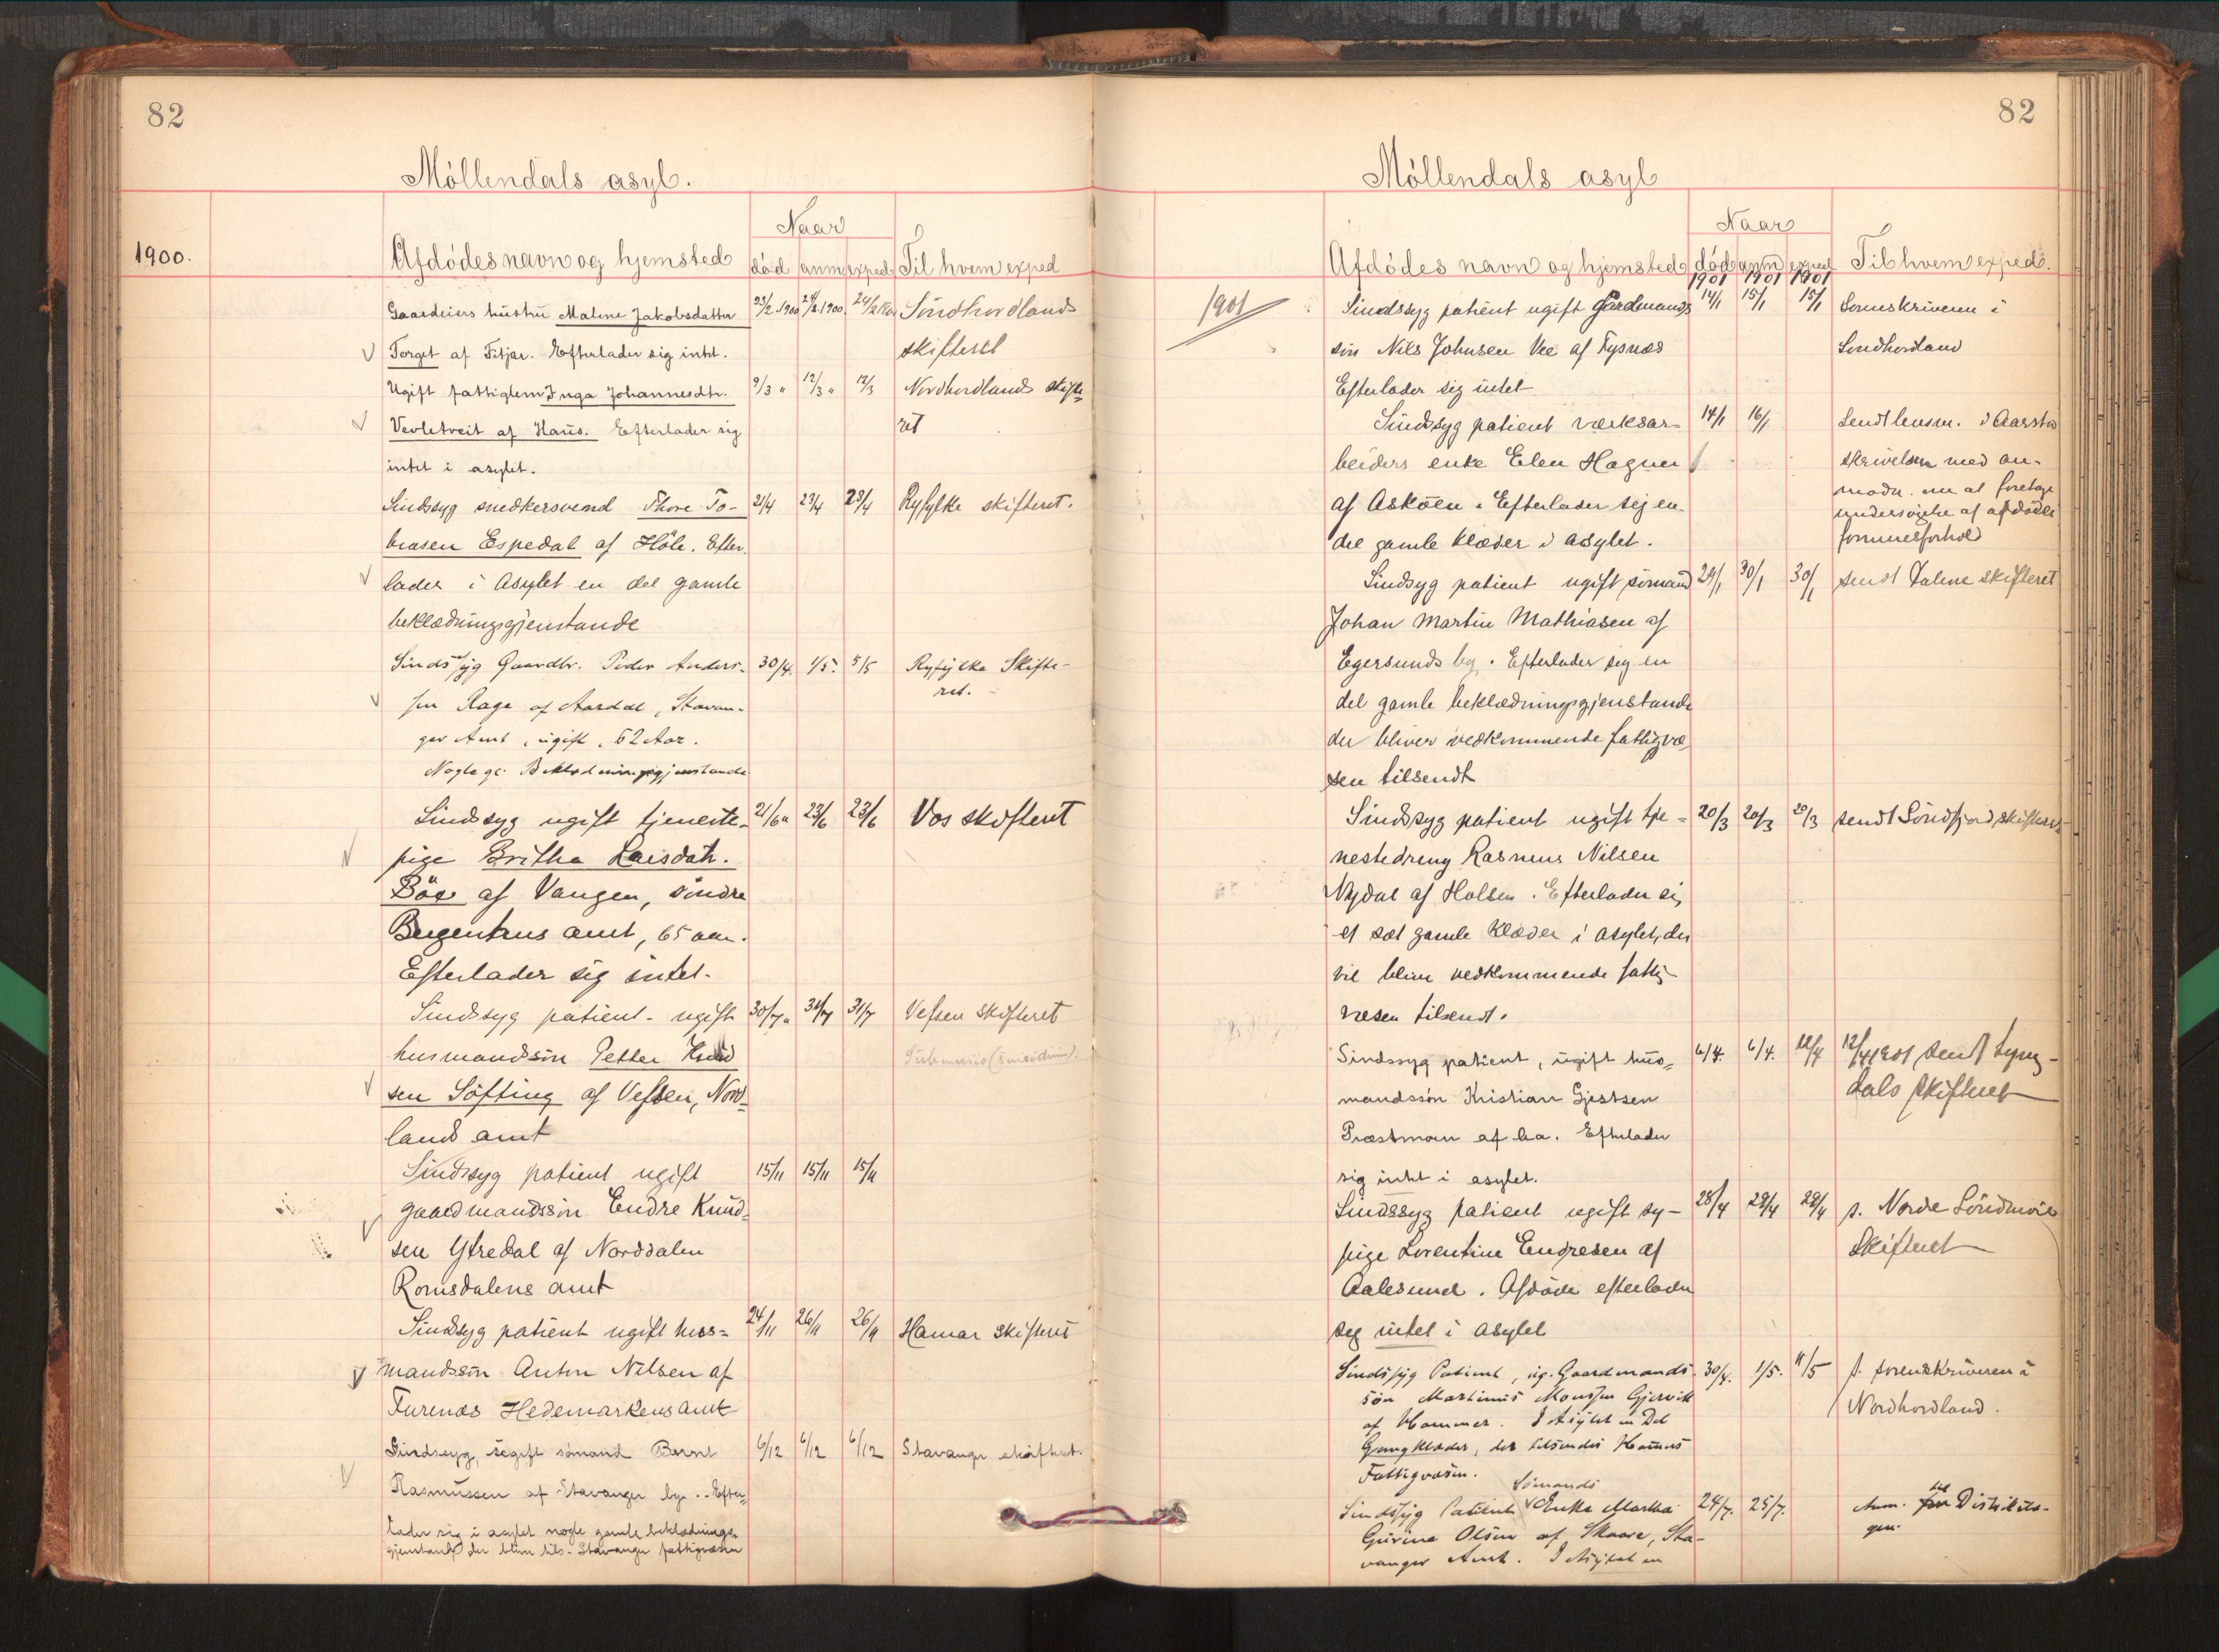 82
Möllendals asyl.
Naar
1900.
Afdödes navn og hjemsted död anm exped Til hvem exped
Gaardeiers hustru Malene Jakobsdatter 23/2 1900 24/2 1900 24/2 Söndhordlands
Torget af Fitjar. Efterlader sig intet. skifteret
Ugift fattiglem Inga Johannesdtr. 9/3 " 12/3 " 12/3 Nordhordlands skifte
Vevletveit af Haus. Efterlader sig ret
intet i asylet.
Sindssyg snedkersvend Thore To- 21/4 23/4 23/4 Ryfylke skifteret.
biasen Espedal af Höle. Efter-
lader i Asylet en del gamle
beklædningsgjenstande
Sindssyg Gaardbr. Peder Anders- 30/4. 1/5. 5/5 Ryfylke Skifte-
sen Rage af Aardal, Stavan- ret.
ger Amt, ugift, 62 Aar.
Nogle gl. Beklædningsgjenstande
Sindssyg ugift tjeneste- 21/6 " 23/6 23/6 Vos skifteret
pige Britha Larsdatr.
Böe af Vangen, söndre
Bergenhus amt, 65 aar.
Efterlader sig intet.
Sindssyg patient - ugift 30/7 " 31/7 31/7 Vefsen skifteret
husmandssön Petter Knud
sen Söfting af Vefsen, Nord-
lands amt
Sindssyg patient ugift 15/11 15/11 15/11
gaardmandssön Endre Knud-
sen Ytredal af Norddalen
Romsdalens amt
Sindssyg patient ugift hus- 24/11 26/11 26/11 Hamar skifteret
mandssön Anton Nilsen af
Furenæs Hedemarkens amt
Sindssyg, ugift sömand Bernt 6/12 6/12 6/12 Stavanger skifteret.
Rasmussen af Stavanger by. Efter-
lader sig i asylet nogle gamle beklædnings-
gjenstande der bliver tils. Stavanger fattigvæsen
82
Möllendals asyl
Naar
Afdödes navn og hjemsted död anm exped Til hvem exped.
1901 1901 1901
1901 Sindssyg patient ugift Gårdmands 14/1 15/1 15/1 Sorenskriveren i
sön Nils Johnsen Vee af Tysnæs Söndhordland
Efterlader sig intet
Sindssyg patient værksar- 14/1 16/1 Sendt lensm. i Aarstad
beiders enke Elen Hagner skrivelsen med an-
af Asköen. Efterlader sig en modn. om at foretage
del gamle klæder i asylet. undersögelse af afdödes
formuesforhold
Sindsyg patient ugift sömand 29/1 30/1 30/1 sendt Dalene skifteret
Johan Martin Mathiasen af
Egersunds by. Efterlader sig en
del gamle beklædningsgjenstande
der bliver vedkommende fattigvæ
sen tilsendt
Sindssyg patient ugift tje- 20/3 20/3 20/3 sendt Söndfjord skifteret
nestedreng Rasmus Nilsen
Nydal af Holsen. Efterlader sig
et sæt gamle klæder i asylet, der
vil blive vedkommende fattig
væsen tilsendt.
Sindssyg patient, ugift hus- 6/4. 6/4. 12/4 12/4 1901 sendt Lyng-
mandssön Kristian Gjestsen dals skifteret
Præstmoen af Aa. Efterlader
sig intet i asylet.
Sindssyg patient ugift sy- 28/4 29/4 29/4 s. Nordre Söndmöre
pige Lorentine Endresen af Skifteret
Aalesund. Afdöde efterlader
sig intet i asylet
Sindssyg Patient, ug. Gaardmands 30/4. 1/5. 11/5 s. sorenskriveren i
sön Martinus Monssen Gjervik Nordhordland.
af Hammer. I Asylet en Del
Gangklæder, der tilsendes Hammers
Fattigvæsen.
Sömands
Sindssyg Patient Enke Martha 24/7. 25/7. Anm. til Distrikts-
Gurine Olsen af Skaare, Sta-
vanger Amt. I Asylet en